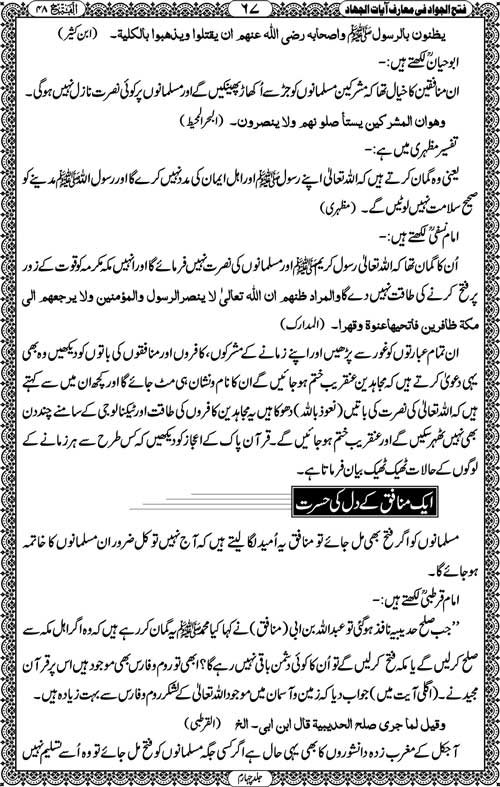 فتح الجواد فی معارف آیات الجهاد ۶۷ الفتح ۴۸
یظنون بالرسول ﷺ واصحابہ رضی اللہ عنہم ان یقتلوا ویذہبوا بالکلیة۔ (ابن کثیر)
ابوحیانؒ لکھتے ہیں:-
ان منافقین کا خیال تھا کہ مشرکین مسلمانوں کو جڑ سے اُکھاڑ پھینکیں گے اور مسلمانوں پر کوئی نصرت نازل نہیں ہوگی۔
وهوان المشركين يستأ صلو نهم ولا ينصرون۔ (البحر المحیط)
تفسیر مظہری میں ہے:-
یعنی وہ گمان کرتے ہیں کہ اللہ تعالیٰ اپنے رسول ﷺ اور اہل ایمان کی مدد نہیں کرے گا اور رسول اللہ ﷺ مدینے کو
صحیح سلامت نہیں لوٹیں گے۔ (مظہری)
امام نسفیؒ لکھتے ہیں:-
اُن کا گمان تھا کہ اللہ تعالیٰ رسول کریم ﷺ اور مسلمانوں کی نصرت نہیں فرمائے گا اور انہیں مکہ مکرمہ کو قوت کے زور
پر فتح کرنے کی طاقت نہیں دے گا والمراد ظنہم ان اللہ تعالیٰ لا ینصر الرسول والمؤمنین ولا یرجعہم الی
مکة ظافرین فاتحیہا عنوة وقہرا۔ (المدارک)
ان تمام عبارتوں کو غور سے پڑھیں اور اپنے زمانے کے مشرکوں، کافروں اور منافقوں کی باتوں کو دیکھیں وہ بھی
یہی دعویٰ کرتے ہیں کہ مجاہدین عنقریب ختم ہو جائیں گے ان کا نام و نشان ہی مٹ جائے گا اور کچھ ان میں سے کہتے
ہیں کہ اللہ تعالیٰ کی نصرت کی باتیں (نعوذ باللہ) دھوکا ہیں یہ مجاہدین کافروں کی طاقت اور ٹیکنالوجی کے سامنے چند دن
بھی نہیں ٹھہر سکیں گے اور عنقریب ختم ہو جائیں گے۔ قرآن پاک کے اعجاز کو دیکھیں کہ کس طرح سے ہر زمانے کے
لوگوں کے حالات ٹھیک ٹھیک بیان فرماتا ہے۔
ایک منافق کے دل کی حسرت
مسلمانوں کو اگر فتح بھی مل جائے تو منافق یہ اُمید لگا لیتے ہیں کہ آج نہیں تو کل ضرور ان مسلمانوں کا خاتمہ
ہو جائے گا۔
امام قرطبیؒ لکھتے ہیں:-
’’جب صلح حدیبیہ نافذ ہوگئی تو عبداللہ بن ابی (منافق) نے کہا کیا محمد ﷺ یہ گمان کر رہے ہیں کہ وہ اگر اہل مکہ سے
صلح کرلیں گے یا مکہ فتح کرلیں گے تو اُن کا کوئی دشمن باقی نہیں رہے گا؟ ابھی تو روم و فارس بھی موجود ہیں اس پر قرآن
مجید نے۔ (اگلی آیت میں) جواب دیا کہ زمین و آسمان میں موجود اللہ تعالیٰ کے لشکر روم و فارس سے بہت زیادہ ہیں۔
وقیل لما جری صلح الحدیبیة قال ابن ابی۔ الخ (القرطبی)
آجکل کے مغرب زدہ دانشوروں کا بھی یہی حال ہے اگر کسی جگہ مسلمانوں کو فتح مل جائے تو وہ اُسے تسلیم نہیں
جلد چہارم